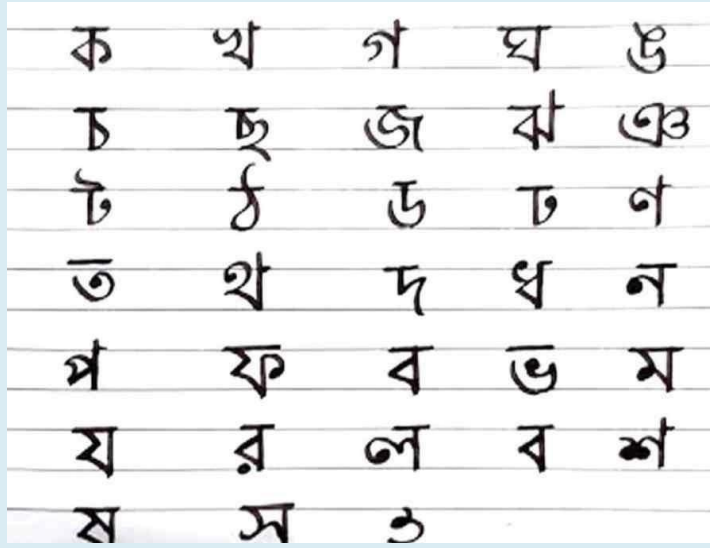 ক খ গ ঘ ঙ
চ ছ জ ঝ ঞ
ট ঠ ড ঢ ণ
ত থ দ ধ ন
প ফ ব ভ ম
য র ল ব শ
ষ স